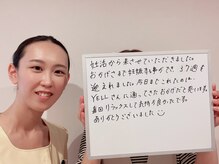 妊活から来させていただきました。
おかげさまで妊娠する事ができ、37週を
迎えれました。今日までこれたのは、
YELLさんに通ってきたおかげだと思います。
毎回リラックスして気持ち良かったです。
ありがとうございました